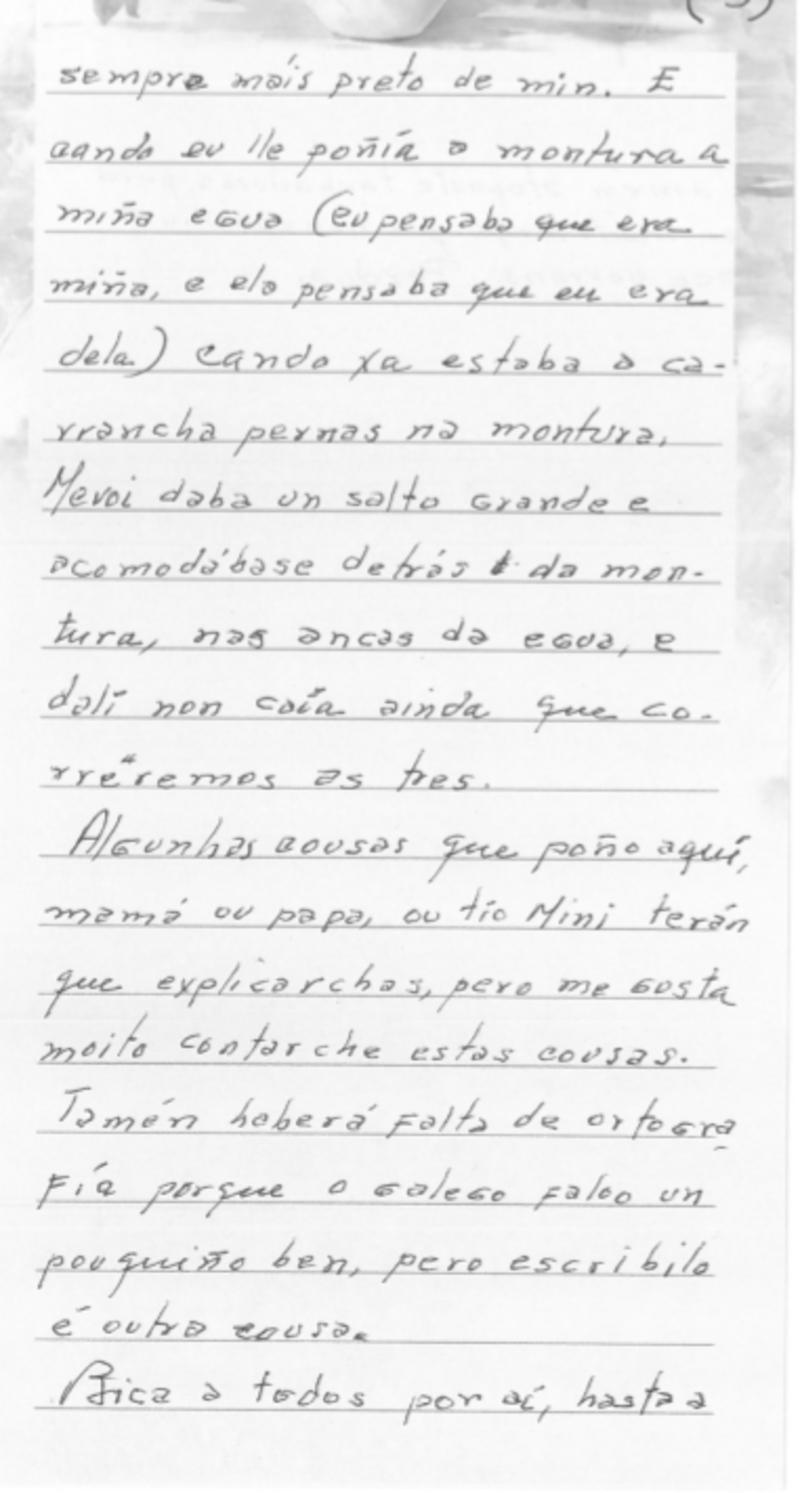 (3)
sempre máis preto de min. E
cando eu lle poñía a montura a
miña egua (eu pensaba que era
miña, e ela pensaba que eu era
dela) cando xa estaba a ca-
rrancha pernas na montura,
Mevoi daba un salto grande e
acomodábase detrás da mon-
tura, nas ancas da egua, e
dalí non caía ainda que co-
rréremos os tres.
Algunhas cousas que poño aquí,
mamá ou papa, ou tío Mini terán
que explicarchas, pero me gusta
moito contar che estas cousas.
Tamén haberá falta de ortogra
fía porque o galego faloo un
pouquiño ben, pero escribilo
é outra cousa.
Bica a todos por aí, hasta a